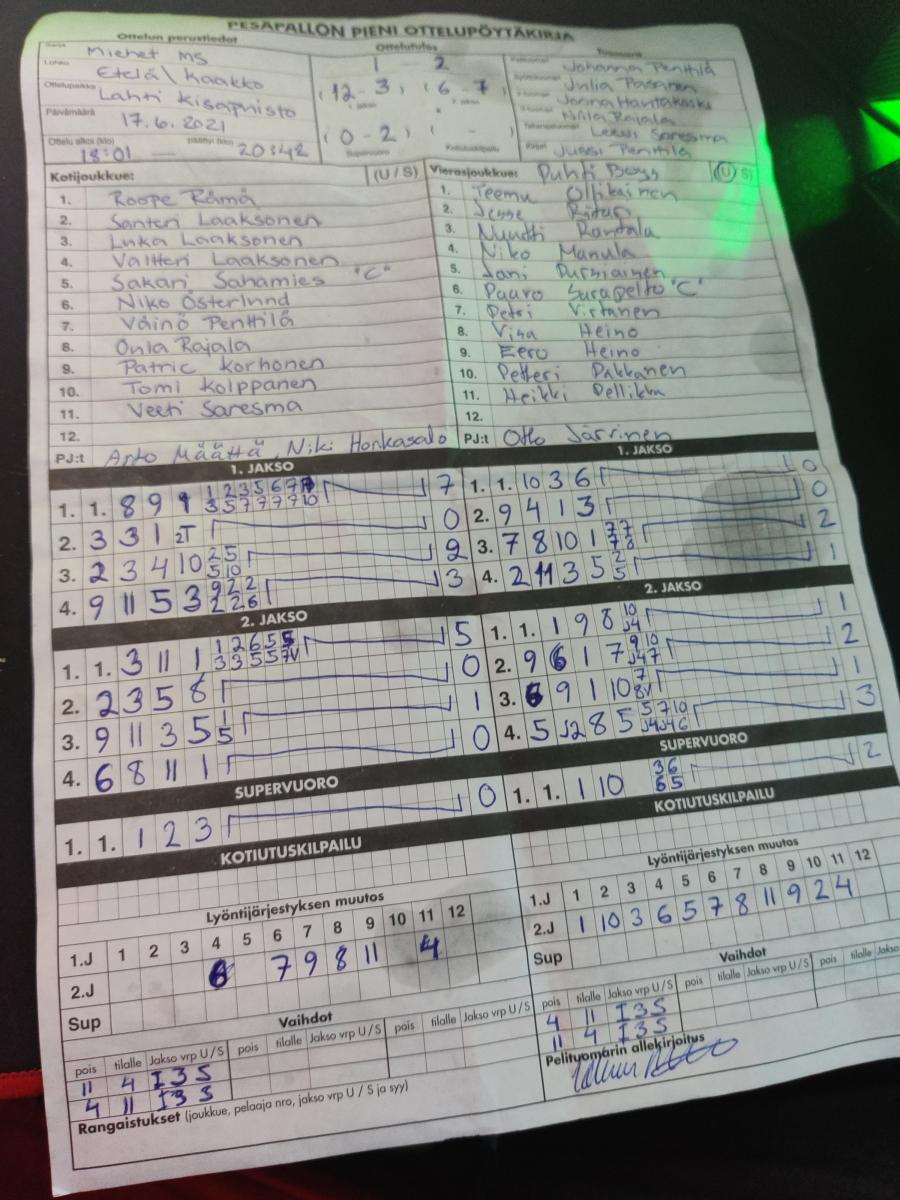 PESÄPALLON PIENI OTTELUPÖYTÄKIRJA
Ottelun perustiedot
Ottelutulos
Tuomarit
Sarja
Miehet MS
Lohko
Etelä\Kaakko
Ottelupaikka
Lahti Kisapuisto
Päivämäärä
17.6.2021
Ottelu alkoi (klo)
18:01
Päättyi (klo)
20:42
1 - 2
(12-3) (6-7)
1. jakso 2. jakso
(0-2) ( - )
Supervuoro Kotiutuskilpailu
Johanna Penttilä
Julia Pasanen
Joona Hantakoski
Niila Rajala
Leevi Saresma
Jussi Penttilä
Kotijoukkue: (U / S)
1. Roope Rämä
2. Santeri Laaksonen
3. Luka Laaksonen
4. Valtteri Laaksonen
5. Sakari Sahamies "C"
6. Niko Österlund
7. Väinö Penttilä
8. Onla Rajala
9. Patric Korhonen
10. Tomi Kolppanen
11. Veeti Saresma
12.
PJ:t Arto Määttä, Niki Honkasalo
Vierasjoukkue: Puhti Boys (U / S)
1. Teemu Ollikainen
2. Jesse
3. Nuutti Rantala
4. Niko Manula
5. Jani Purmiainen
6. Paavo Surapelto "C"
7. Petri Virtanen
8. Visa Heino
9. Eero Heino
10. Petteri Pakkanen
11. Heikki Pellikka
12.
PJ:t Otto Järvinen
1. JAKSO
1. 1. 8 9 1 7
2. 3 3 1 2T 0
3. 2 3 4 10 2 5 2
5 10
4. 9 11 5 3 9 2 2 3
2 2 6
2. JAKSO
1. 1. 3 11 1 1 2 6 5 5 5
3 3 5 5 7V
2. 2 3 5 8 0
3. 9 11 3 5 1 1
5
4. 6 8 11 1 0
SUPERVUORO
1. 1. 1 2 3 0
KOTIUTUSKILPAILU
1. JAKSO
1. 1. 10 3 6 0
2. 9 4 1 3 0
3. 7 8 10 1 7 7 2
7 8
4. 2 11 3 5 2 1
5
2. JAKSO
1. 1. 1 9 8 10 1
J4
2. 9 6 1 7 9 10 2
J4 7
3. 6 9 1 10 7 1
8V
4. 5 J2 8 5 5 7 10 3
J4 J4 6
SUPERVUORO
1. 1. 1 10 3 6 2
6 5
KOTIUTUSKILPAILU
Lyöntijärjestyksen muutos
1.J 1 2 3 4 5 6 7 8 9 10 11 12
2.J 6 7 9 8 11 4
Sup
Vaihdot
pois tilalle Jakso vrp U / S pois tilalle Jakso vrp U / S pois tilalle Jakso vrp U / S
11 4 I 3 S
4 11 I 3 S
Rangaistukset (joukkue, pelaaja nro, jakso vrp U / S ja syy)
Lyöntijärjestyksen muutos
1.J 1 2 3 4 5 6 7 8 9 10 11 12
2.J 1 10 3 6 5 7 8 11 9 2 4
Sup
Vaihdot
pois tilalle Jakso vrp U / S pois tilalle Jakso vrp U / S pois tilalle Jakso
4 11 I 3 S
11 4 I 3 S
Pelituomarin allekirjoitus